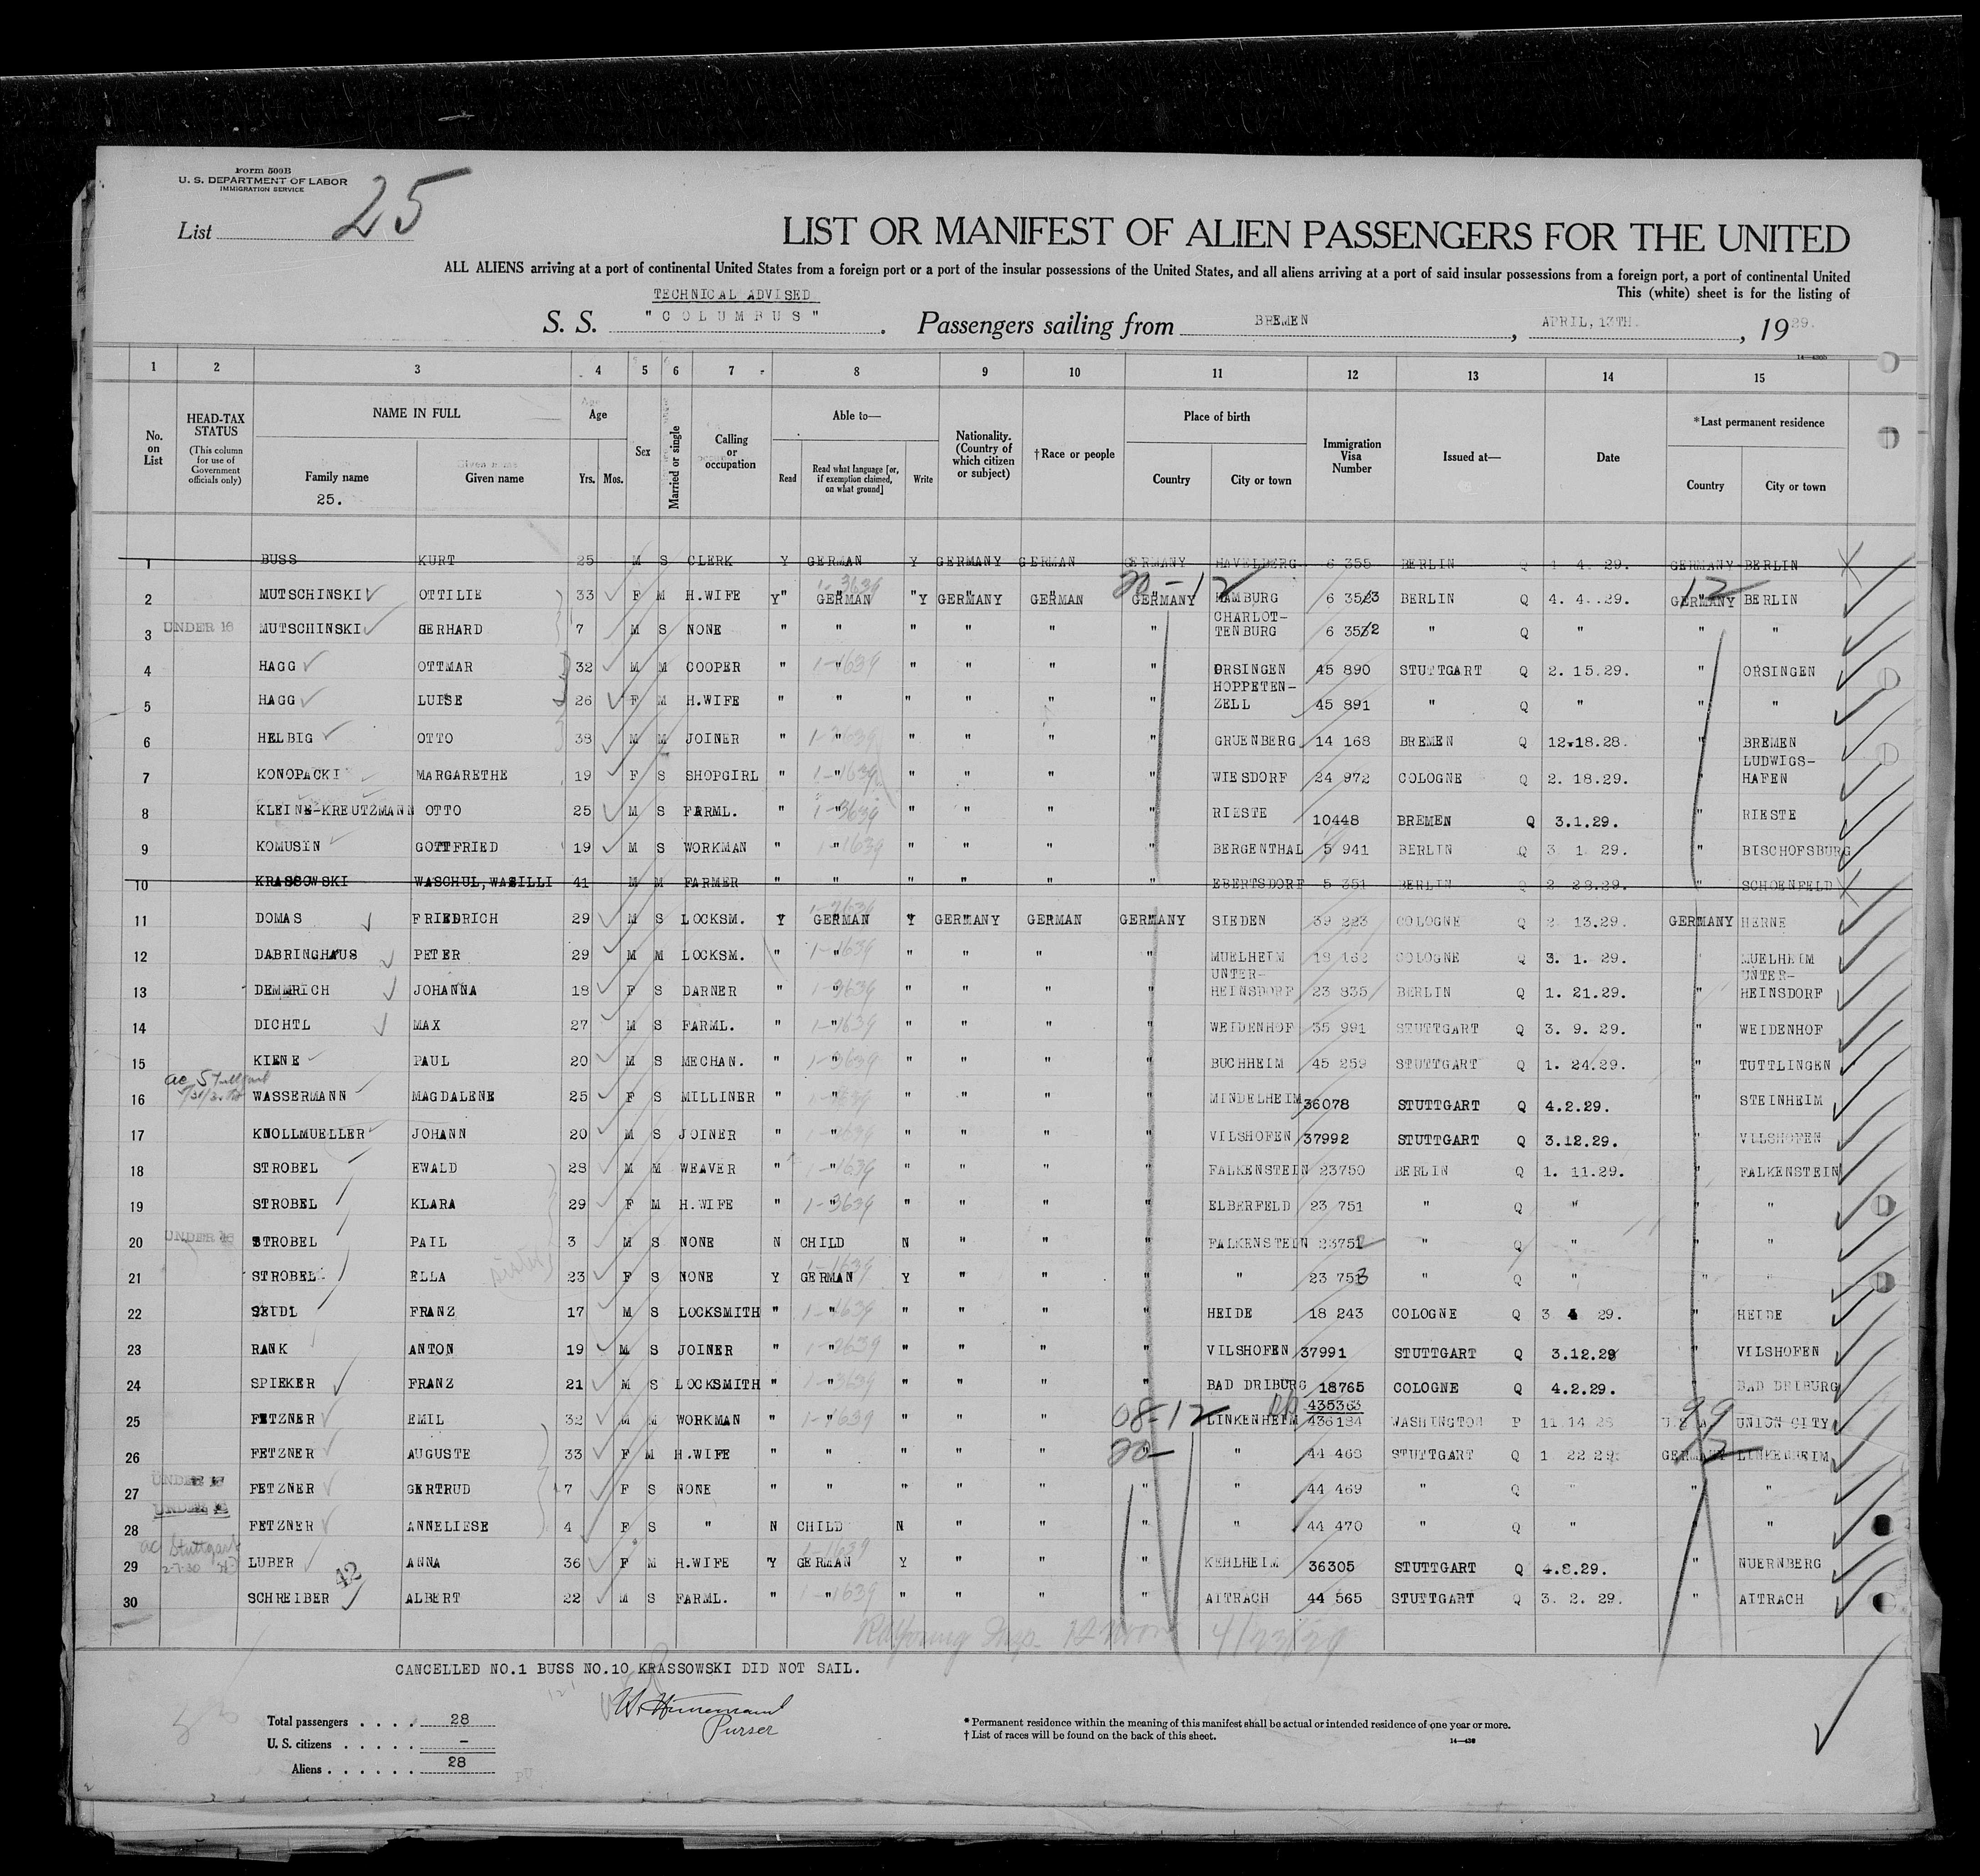 Form 500B
U. S. DEPARTMENT OF LABOR
IMMIGRATION SERVICE
List 25
LIST OR MANIFEST OF ALIEN PASSENGERS FOR THE UNITED
ALL ALIENS arriving at a port of continental United States from a foreign port or a port of the insular possessions of the United States, and all aliens arriving at a port of said insular possessions from a foreign port, a port of continental United
This (white) sheet is for the listing of
TECHNICAL ADVISED
S. S. "COLUMBUS". Passengers sailing from BREMEN, APRIL, 13TH., 1929.
1 2 3 4 5 6 7 8 9 10 11 12 13 14 15
No. on List
HEAD-TAX STATUS
(This column for use of Government officials only)
NAME IN FULL
Family name
25.
Given name
Age
Yrs. Mos.
Sex
Married or single
Calling or occupation
Able to—
Read
Read what language [or, if exemption claimed, on what ground]
Write
Nationality. (Country of which citizen or subject)
†Race or people
Place of birth
Country
City or town
Immigration Visa Number
Issued at—
Date
*Last permanent residence
Country
City or town
1 BUSS KURT 25 M S CLERK Y GERMAN Y GERMANY GERMAN GERMANY HAVELBERG 6 355 BERLIN Q 4. 29. GERMANY BERLIN
2 MUTSCHINSKI OTTILIE 33 F M H.WIFE Y" GERMAN "Y GERMANY GERMAN GERMANY HAMBURG 6 353 BERLIN Q 4. 4. 29. GERMANY BERLIN
3 UNDER 16 MUTSCHINSKI GERHARD 7 M S NONE " " " " " " CHARLOT-TENBURG 6 352 " Q " " "
4 HAGG OTTMAR 32 M M COOPER " " " " " " ORSINGEN 45 890 STUTTGART Q 2. 15.29. " ORSINGEN
5 HAGG LUISE 26 F M H.WIFE " " " " " " HOPPETEN-ZELL 45 891 " Q " " "
6 HELBIG OTTO 38 M M JOINER " " " " " " GRUENBERG 14 168 BREMEN Q 12.18.28. " BREMEN
7 KONOPACKI MARGARETHE 19 F S SHOPGIRL " " " " " " WIESDORF 24 972 COLOGNE Q 2. 18.29. " LUDWIGS-HAFEN
8 KLEINE-KREUTZMANN OTTO 25 M S FARML. " " " " " " RIESTE 10448 BREMEN Q 3.1.29. " RIESTE
9 KOMUSIN GOTTFRIED 19 M S WORKMAN " " " " " " BERGENTHAL 5 941 BERLIN Q 3 1 29. " BISCHOFSBURG
10 KRASSOWSKI WASCHUL,WASILLI 41 M M FARMER " " " " " " EBERTSDORF 5 351 BERLIN Q 2 28.29. " SCHOENFELD
11 DOMAS FRIEDRICH 29 M S LOCKSM. Y GERMAN Y GERMANY GERMAN GERMANY SIEDEN 39 223 COLOGNE Q 2 13.29. GERMANY HERNE
12 DABRINGHAUS PETER 29 M M LOCKSM. " " " " " " MUELHEIM 19 162 COLOGNE Q 3. 1. 29. " MUELHEIM
13 DEMMRICH JOHANNA 18 F S DARNER " " " " " " UNTER-HEINSDORF 23 835 BERLIN Q 1. 21.29. " UNTER-HEINSDORF
14 DICHTL MAX 27 M S FARML. " " " " " " WEIDENHOF 35 991 STUTTGART Q 3. 9. 29. " WEIDENHOF
15 KIENE PAUL 20 M S MECHAN. " " " " " " BUCHHEIM 45 259 STUTTGART Q 1. 24.29. " TUTTLINGEN
16 WASSERMANN MAGDALENE 25 F S MILLINER " " " " " " MINDELHEIM 36078 STUTTGART Q 4.2.29. " STEINHEIM
17 KNOLLMUELLER JOHANN 20 M S JOINER " " " " " " VILSHOFEN 37992 STUTTGART Q 3.12.29. " VILSHOFEN
18 STROBEL EWALD 28 M M WEAVER " " " " " " FALKENSTEIN 23750 BERLIN Q 1. 11.29. " FALKENSTEIN
19 STROBEL KLARA 29 F M H.WIFE " " " " " " ELBERFELD 23 751 " Q " " "
20 UNDER 16 STROBEL PAIL 3 M S NONE N CHILD N " " " FALKENSTEIN 23752 " Q " " "
21 STROBEL ELLA sister 23 F S NONE Y GERMAN Y " " " " 23 753 " Q " " "
22 SEIDL FRANZ 17 M S LOCKSMITH " " " " " " HEIDE 18 243 COLOGNE Q 3 4 29. " HEIDE
23 RANK ANTON 19 M S JOINER " " " " " " VILSHOFEN 37991 STUTTGART Q 3.12.29 " VILSHOFEN
24 SPIEKER FRANZ 21 M S LOCKSMITH " " " " " " BAD DRIBURG 18765 COLOGNE Q 4.2.29. " BAD DRIBURG
25 FETZNER EMIL 32 M M WORKMAN " " " " " 08-12 LINKENHEIM 435363 436184 WASHINGTON P 11.14 28 U.S.A. 99 UNION CITY
26 FETZNER AUGUSTE 33 F M H.WIFE " " " " " " " 44 468 STUTTGART Q 1 22 29. GERMANY LINKENHEIM
27 UNDER 16 FETZNER GERTRUD 7 F S NONE " " " " " " " 44 469 " Q " " "
28 UNDER 16 FETZNER ANNELIESE 4 F S " N CHILD N " " " " 44 470 " Q " " "
29 ac Stuttgart 2-7-30 LUBER ANNA 36 F M H.WIFE Y GERMAN Y " " " KEHLHEIM 36305 STUTTGART Q 4.8.29. " NUERNBERG
30 SCHREIBER 42 ALBERT 22 M S FARML. " " " " " " AITRACH 44 565 STUTTGART Q 3. 2. 29. " AITRACH
Insp. 12 noon 4/23/29
CANCELLED NO.1 BUSS NO.10 KRASSOWSKI DID NOT SAIL.
Purser
Total passengers . . . . 28
U. S. citizens . . . . . –
Aliens . . . . . . 28
* Permanent residence within the meaning of this manifest shall be actual or intended residence of one year or more.
† List of races will be found on the back of this sheet.